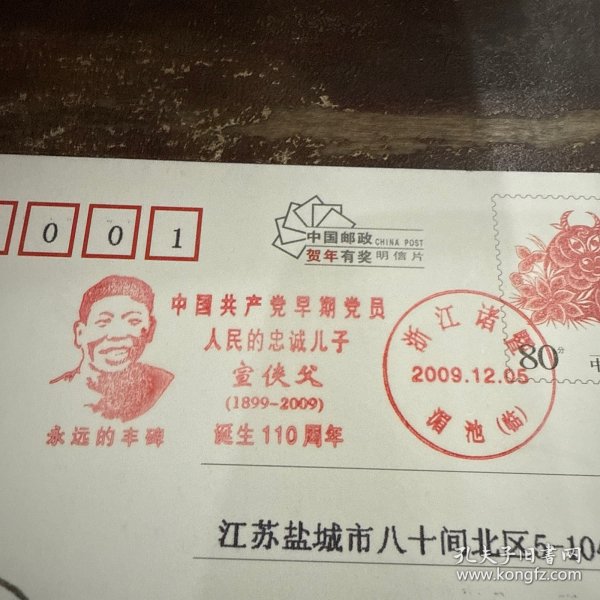 0 0 1
中国邮政 CHINA POST
贺年有奖 明信片
中国共产党早期党员
人民的忠诚儿子
宣侠父
(1899-2009)
永远的丰碑 诞生110周年
浙江诸暨
2009.12.05
湄池(临)
80分
中
江苏盐城市八十间北区5-104
孔夫子旧书网
www.kongfz.com